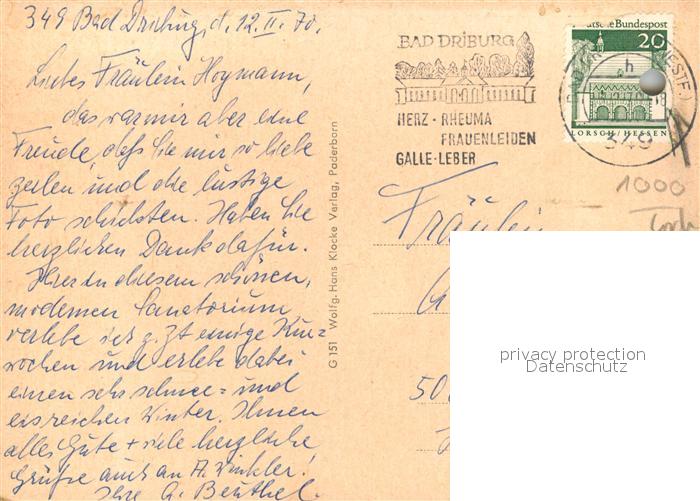 349 Bad Driburg, d. 12. II. 70.
Liebes Fräulein Hoymann,
das war mir aber eine
Freude, daß Sie mir so liebe
Zeilen und die lustige
Foto schickten. Haben Sie
herzlichen Dank dafür.
Hier in diesem schönen,
modernen Sanatorium
verlebe ich z. Zt einige Kur=
wochen und erlebe dabei
einen sehr schnee= und
eisreichen Winter. Ihnen
alles Gute + viele herzliche
Grüße auch an A. Winkler!
Ihre G. Beuthel.
G 151 Wolfg.-Hans Klocke Verlag, Paderborn
BAD DRIBURG
HERZ · RHEUMA
FRAUENLEIDEN
GALLE · LEBER
Deutsche Bundespost
20
h
LORSCH / HESSEN
349
1000
Fräulein
50
privacy protection
Datenschutz